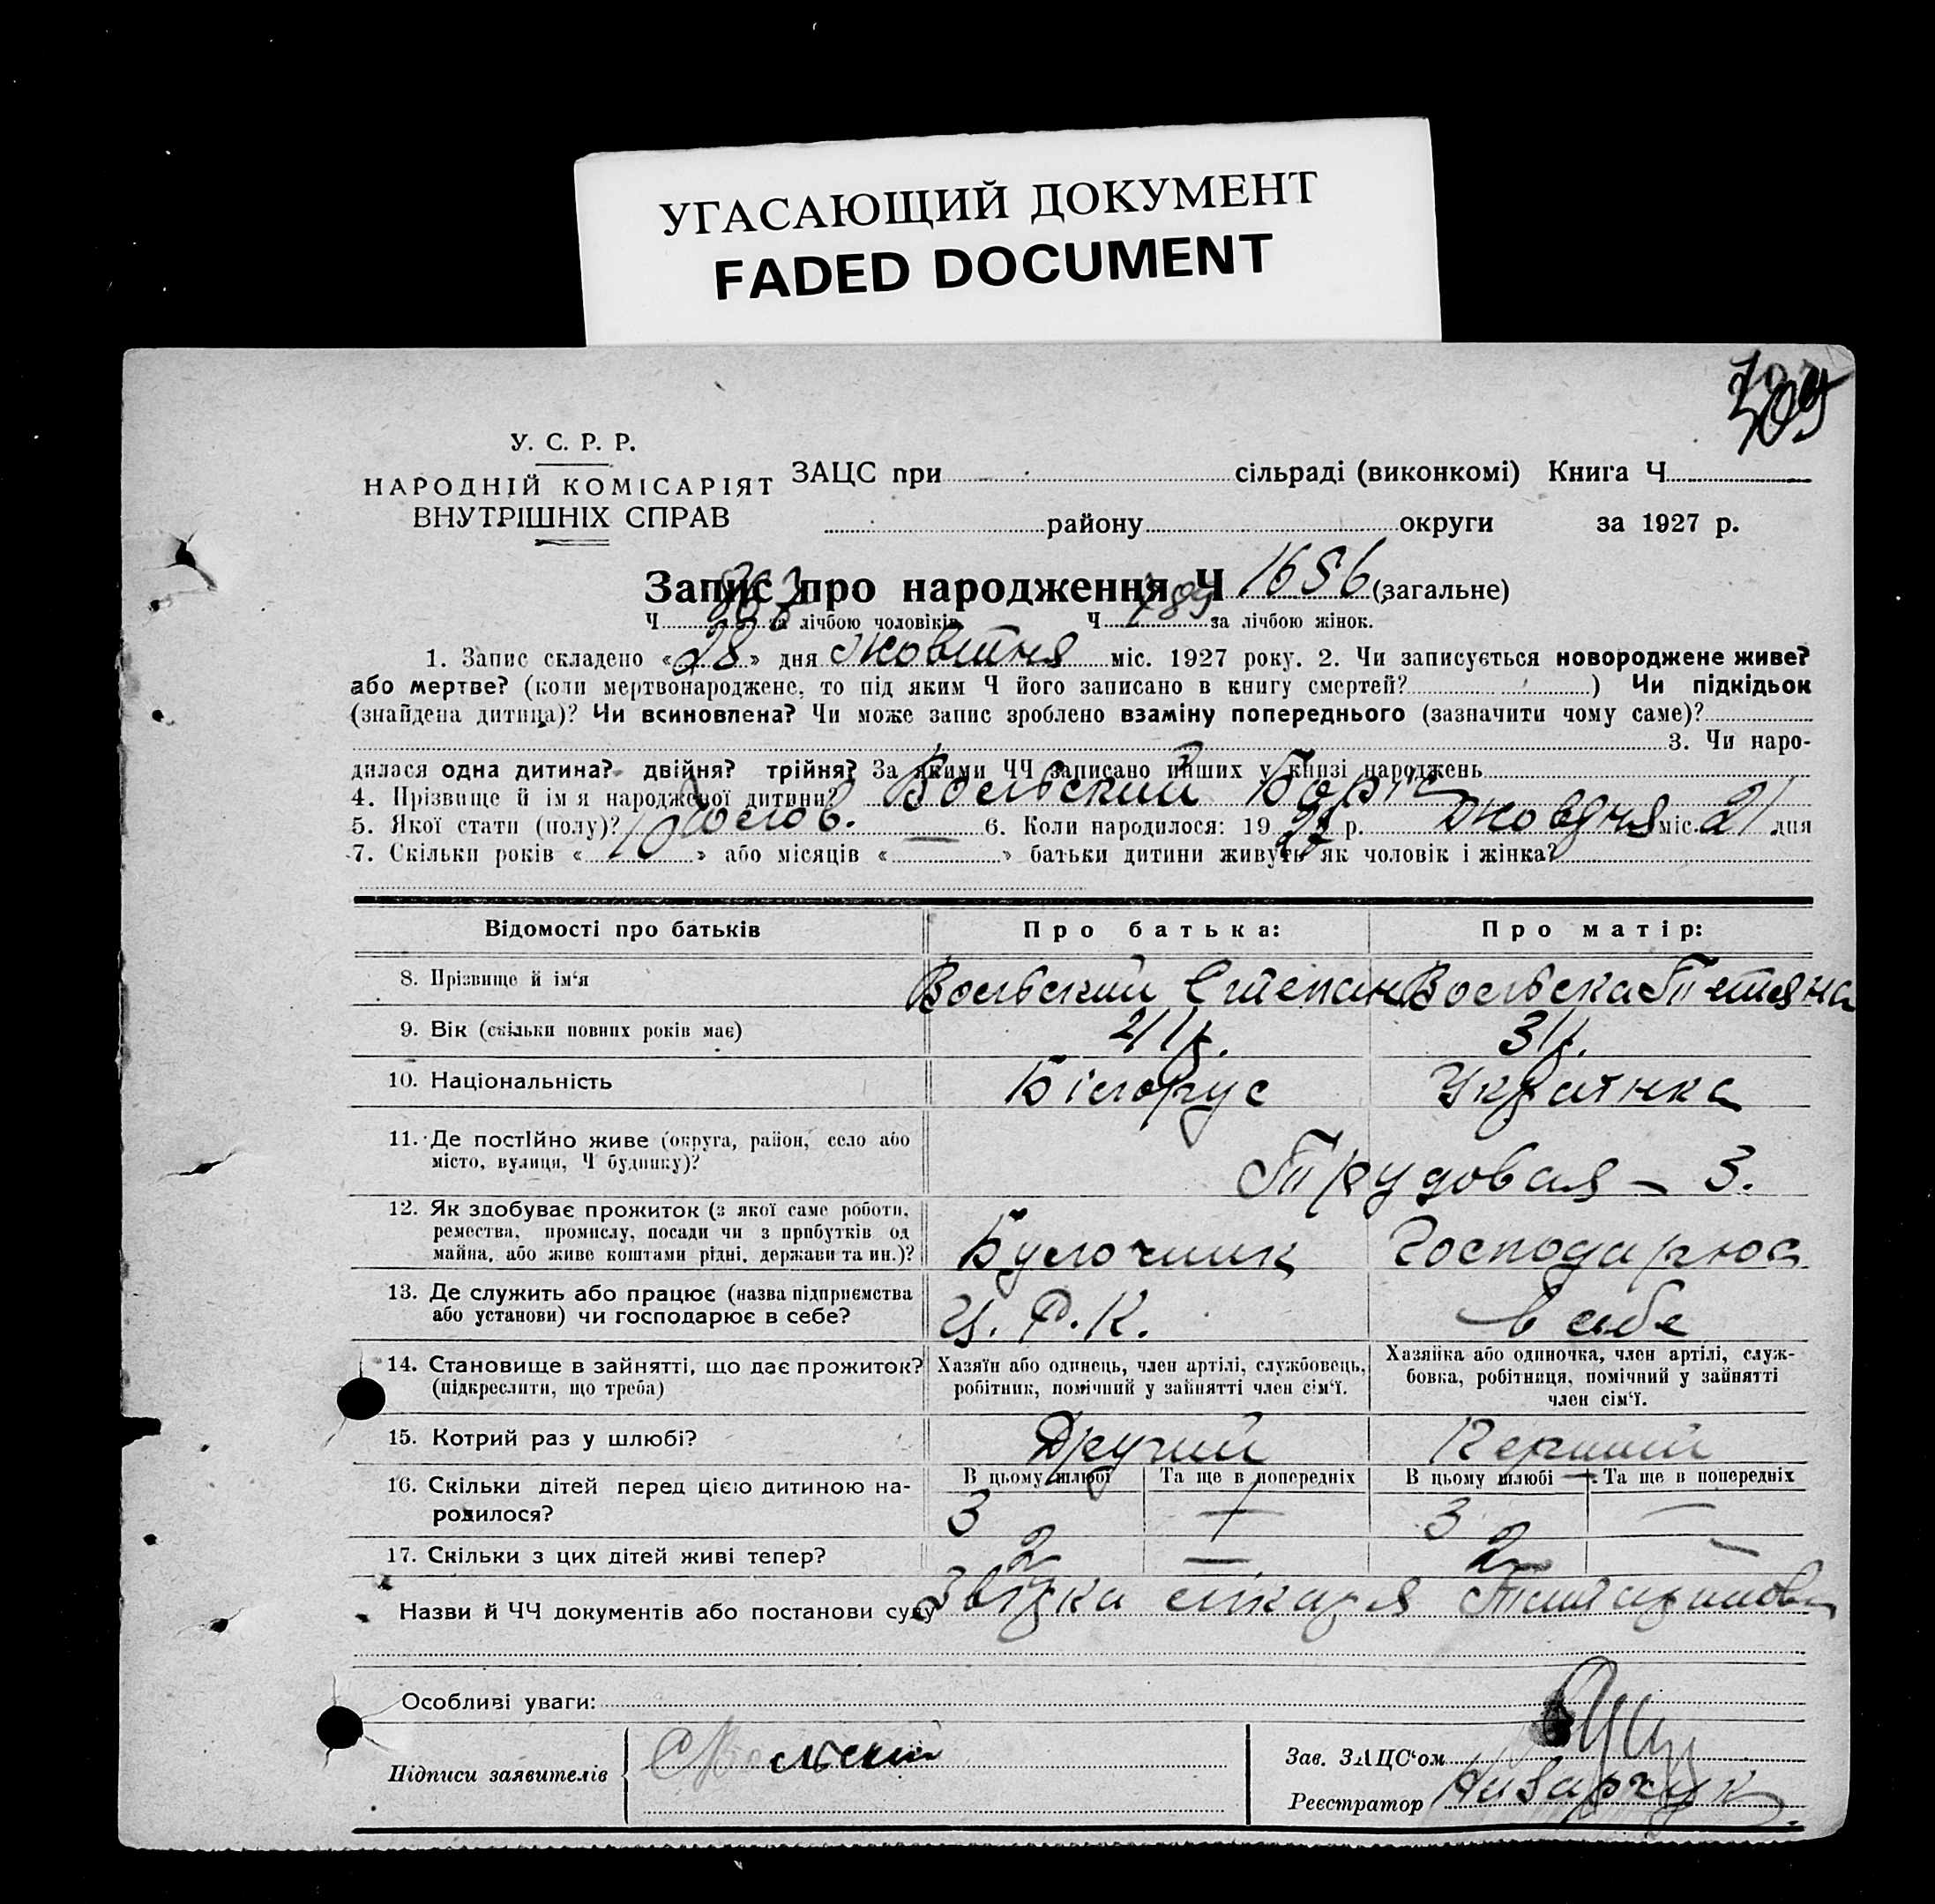 УГАСАЮЩИЙ ДОКУМЕНТ
FADED DOCUMENT
У. С. Р. Р.
НАРОДНІЙ КОМІСАРІЯТ
ВНУТРІШНІХ СПРАВ
ЗАЦС при сільраді (виконкомі) Книга Ч
району округи за 1927 р.
Запис про народження Ч 1656 (загальне)
Ч за лічбою чоловіків Ч 789 за лічбою жінок.
1. Запис складено «28» дня жовтня міс. 1927 року. 2. Чи записується новороджене живе?
або мертве? (коли мертвонароджене, то під яким Ч його записано в книгу смертей? ) Чи підкідьок
(знайдена дитина)? Чи всиновлена? Чи може запис зроблено взаміну попереднього (зазначити чому саме)?
3. Чи наро-
дилася одна дитина? двійня? трійня? За якими ЧЧ записано инших у книзі народжень
4. Прізвище й ім я народженої дитини? Вольський Борис
5. Якої стати (полу)? Чолов. — 6. Коли народилося: 19 27 р. жовдня міс. 21 дня
7. Скільки років «10» або місяців « » батьки дитини живуть як чоловік і жінка?
Відомості про батьків Про батька: Про матір:
8. Прізвище й ім‘я Вольский Степан Вольська Тетяна
9. Вік (скільки повних років має) 41 р. 31 р.
10. Національність Білорус Українка
11. Де постійно живе (округа, район, село або
місто, вулиця, Ч будинку)?
Трудовая — 3.
12. Як здобуває прожиток (з якої саме роботи,
ремества, промислу, посади чи з прибутків од
майна, або живе коштами рідні, держави та ин.)?
Булочник Господарює
13. Де служить або працює (назва підприємства
або установи) чи господарює в себе?
Ц. Р. К. в себе
14. Становище в зайнятті, що дає прожиток?
(підкреслити, що треба)
Хазяїн або одинець, член артілі, службовець,
робітник, помічний у зайнятті член сім‘ї.
Хазяйка або одиночка, член артілі, служ-
бовка, робітниця, помічний у зайнятті
член сім‘ї.
15. Котрий раз у шлюбі? Другий Перший
16. Скільки дітей перед цією дитиною на-
родилося?
В цьому шлюбі Та ще в попередніх В цьому шлюбі Та ще в попередніх
3 — 3 —
17. Скільки з цих дітей живі тепер? 2 — 2 —
Назви й ЧЧ документів або постанови суду Звідка лікаря
Особливі уваги:
Підписи заявителів СВольский
Зав. ЗАЦС‘ом
Реєстратор